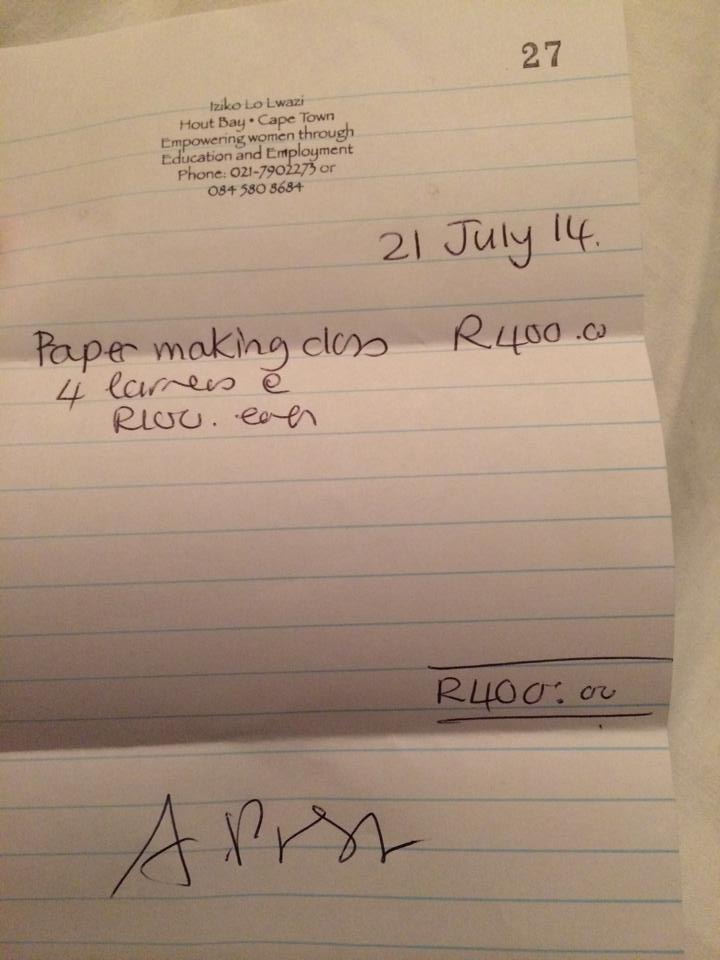 27
Iziko Lo Lwazi
Hout Bay • Cape Town
Empowering women through
Education and Employment
Phone: 021-7902273 or
084 580 8684
21 July 14.
Paper making class R400.00
4 larners @
R100. each
R400:00